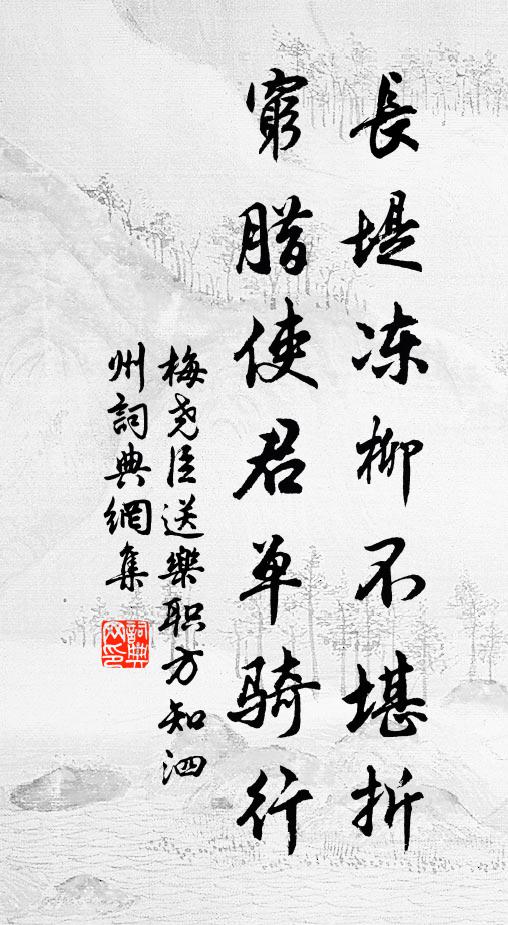 長堤冻柳不堪折
窮腊使君单騎行
梅尧臣送樂职方知泗
州詞典網集
詞典
网印